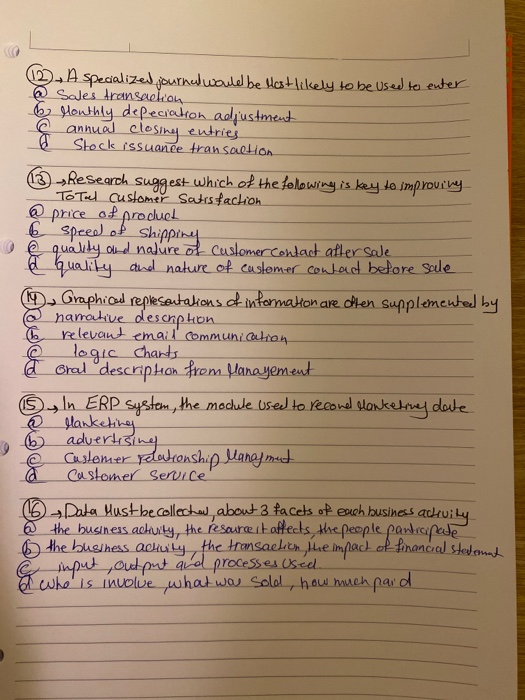 (12) → A specialized journal would be Most likely to be used to enter
(a) Sales transaction
(b) Monthly depeciation adjustment
(c) annual closing entries
(d) Stock issuance transaction
(13) → Research suggest which of the following is key to improving
ToTal Customer Satisfaction
(a) price of product
(b) speed of shipping
(c) quality and nature of customer contact after sale
(d) quality and nature of customer contact before sale
(14) → Graphical representations of information are often supplemented by
(a) narrative description
(b) relevant email communication
(c) logic charts
(d) oral description from Management
(15) → In ERP system, the module used to record Marketing data
(a) Marketing
(b) advertising
(c) Customer relationship Mangment
(d) Customer service
(16) → Data Must be collected about 3 facets of each business activity
(a) the business activity, the resource it affects, the people participate
(b) the business activity, the transaction, the impact of financial statment
(c) input, output and processes used
(d) who is involve, what was sold, how much paid